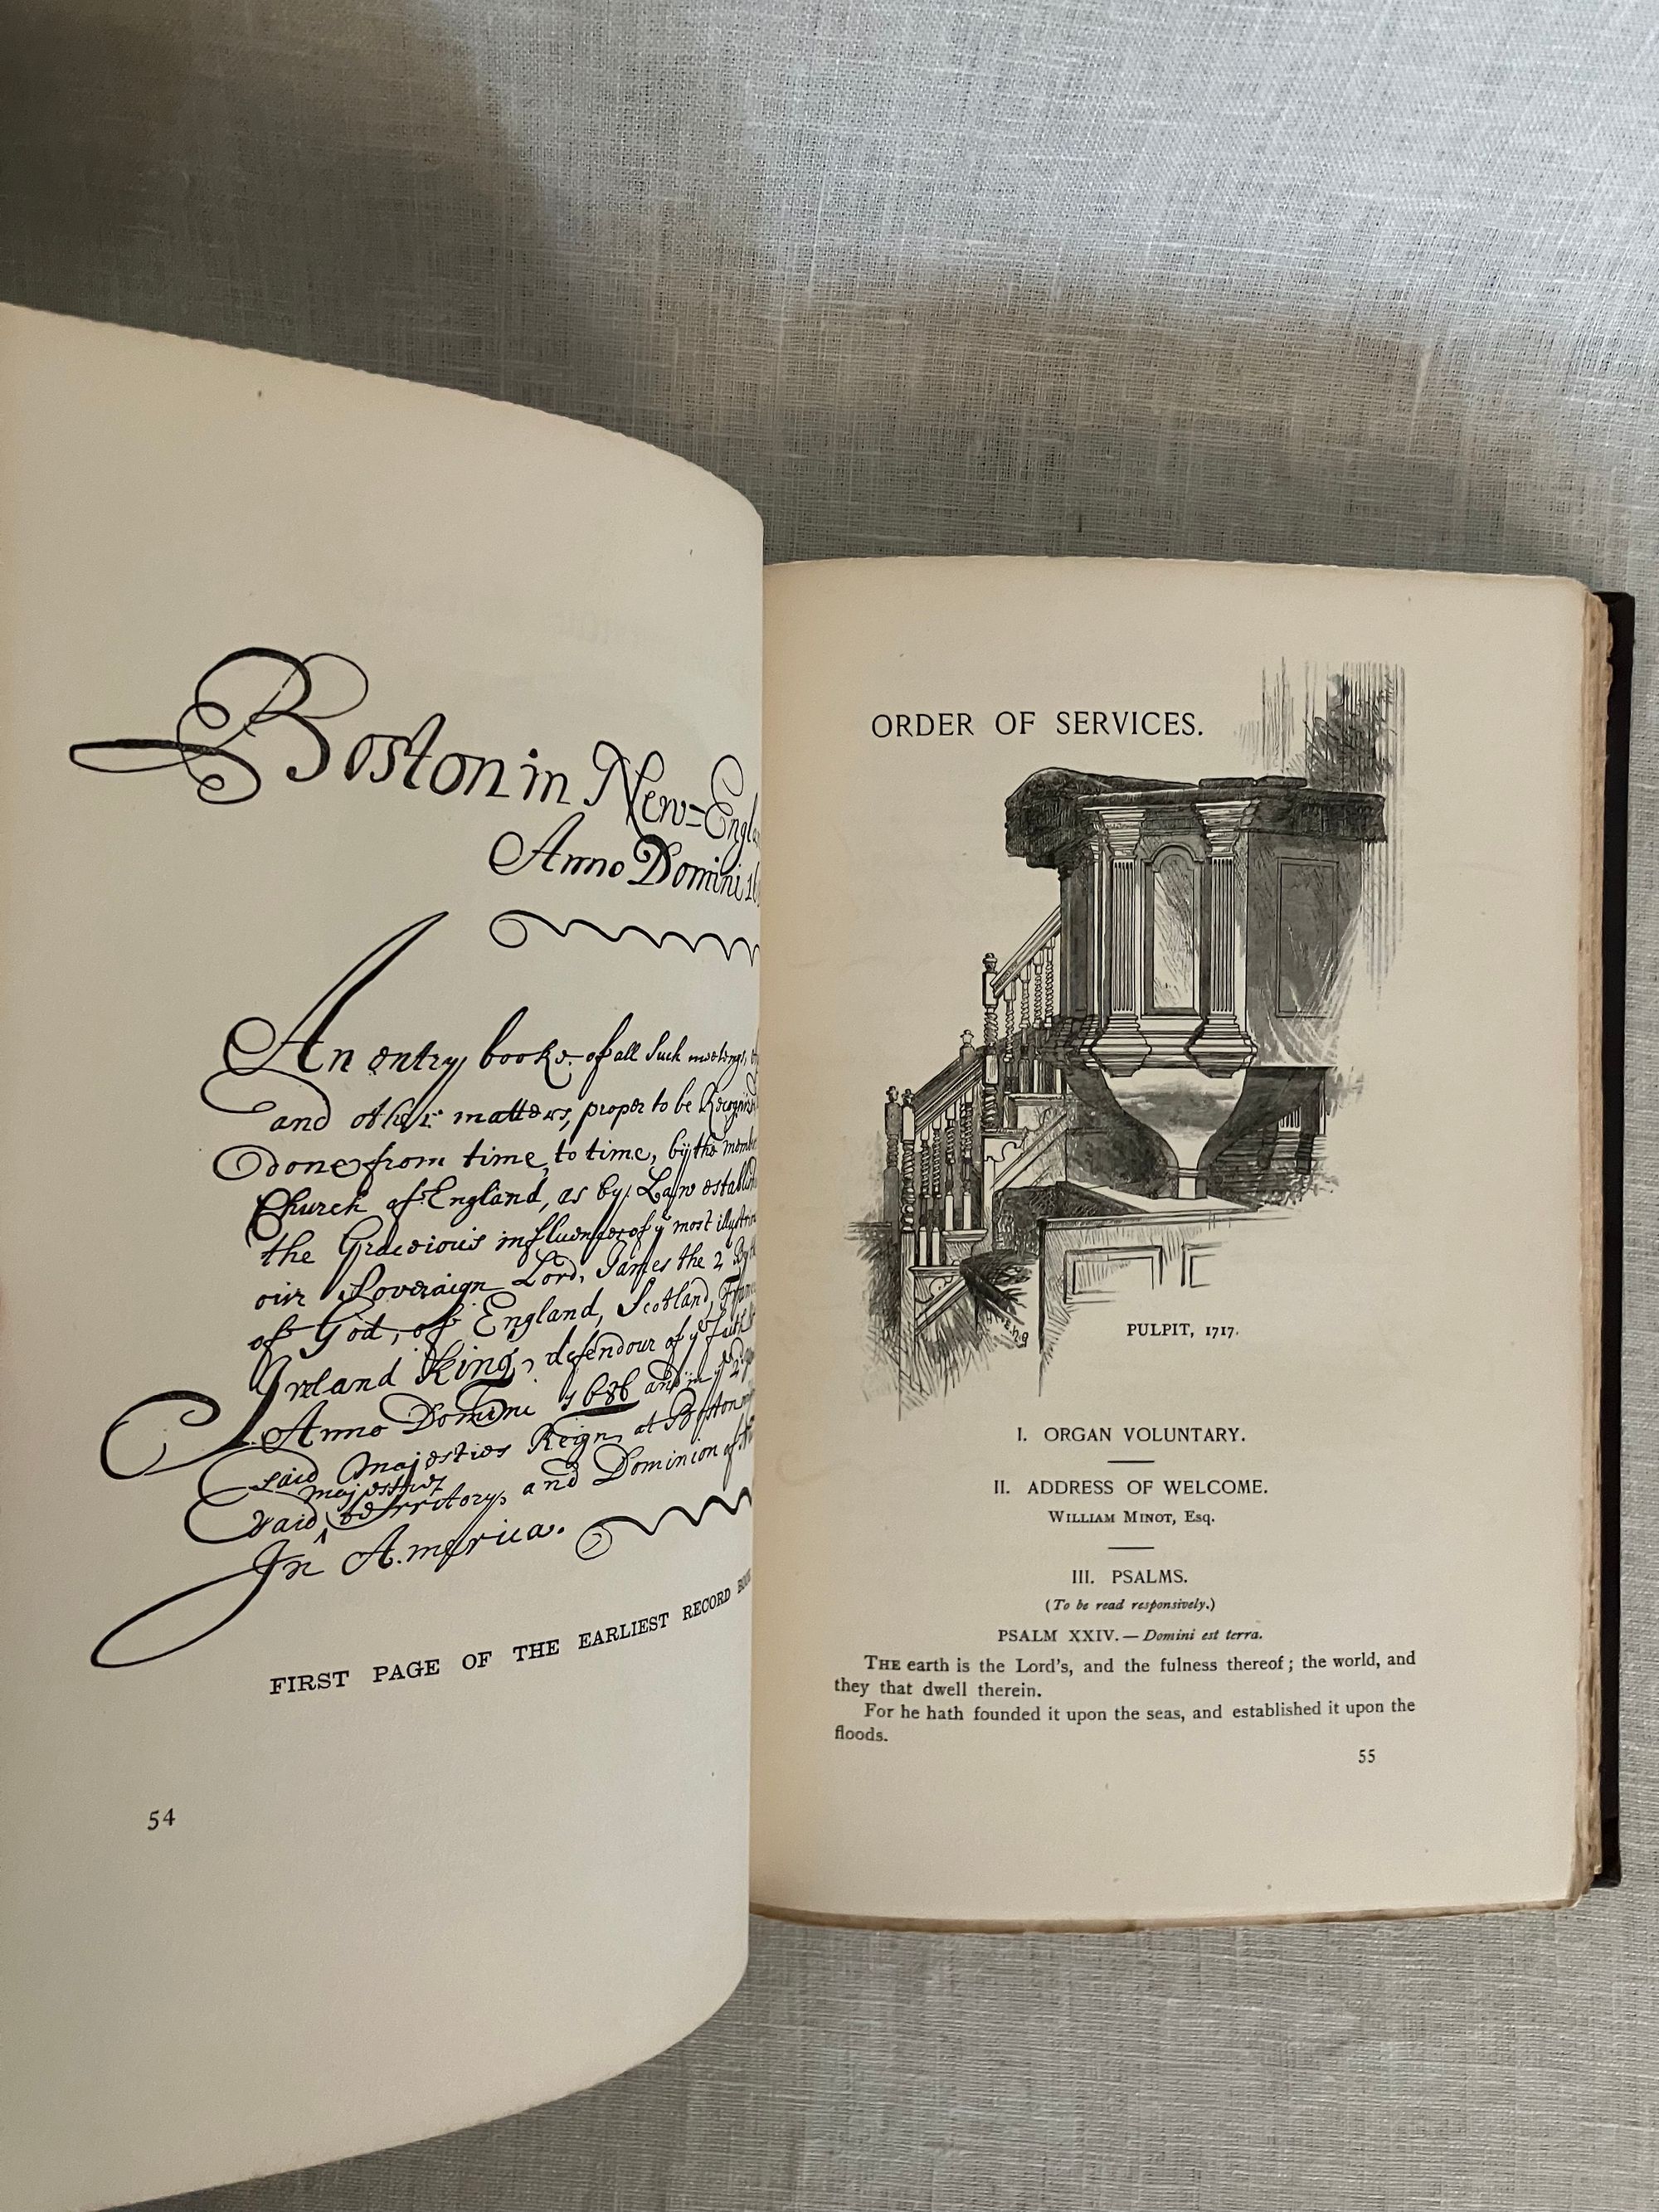 Boston in New=Engl
Anno Domini 16
An entry booke of all Such meetings,
and other matters, proper to be Recogni
done from time, to time, by the memb
Church of England, as by Law establi
the Gracious influences of ye most illustri
our Soveraign Lord, James the 2 By
of God, of England, Scotland, Fran
Ireland King, defendour of ye faith
Anno Domini 1686 and in ye 2d
Said Majesties Reign, at Boston
majesties
Said territory, and Dominion of
In America.
FIRST PAGE OF THE EARLIEST RECORD BOOK
54
ORDER OF SERVICES.
PULPIT, 1717.
I. ORGAN VOLUNTARY.
II. ADDRESS OF WELCOME.
WILLIAM MINOT, Esq.
III. PSALMS.
(To be read responsively.)
PSALM XXIV.—Domini est terra.
THE earth is the Lord's, and the fulness thereof; the world, and
they that dwell therein.
For he hath founded it upon the seas, and established it upon the
floods.
55